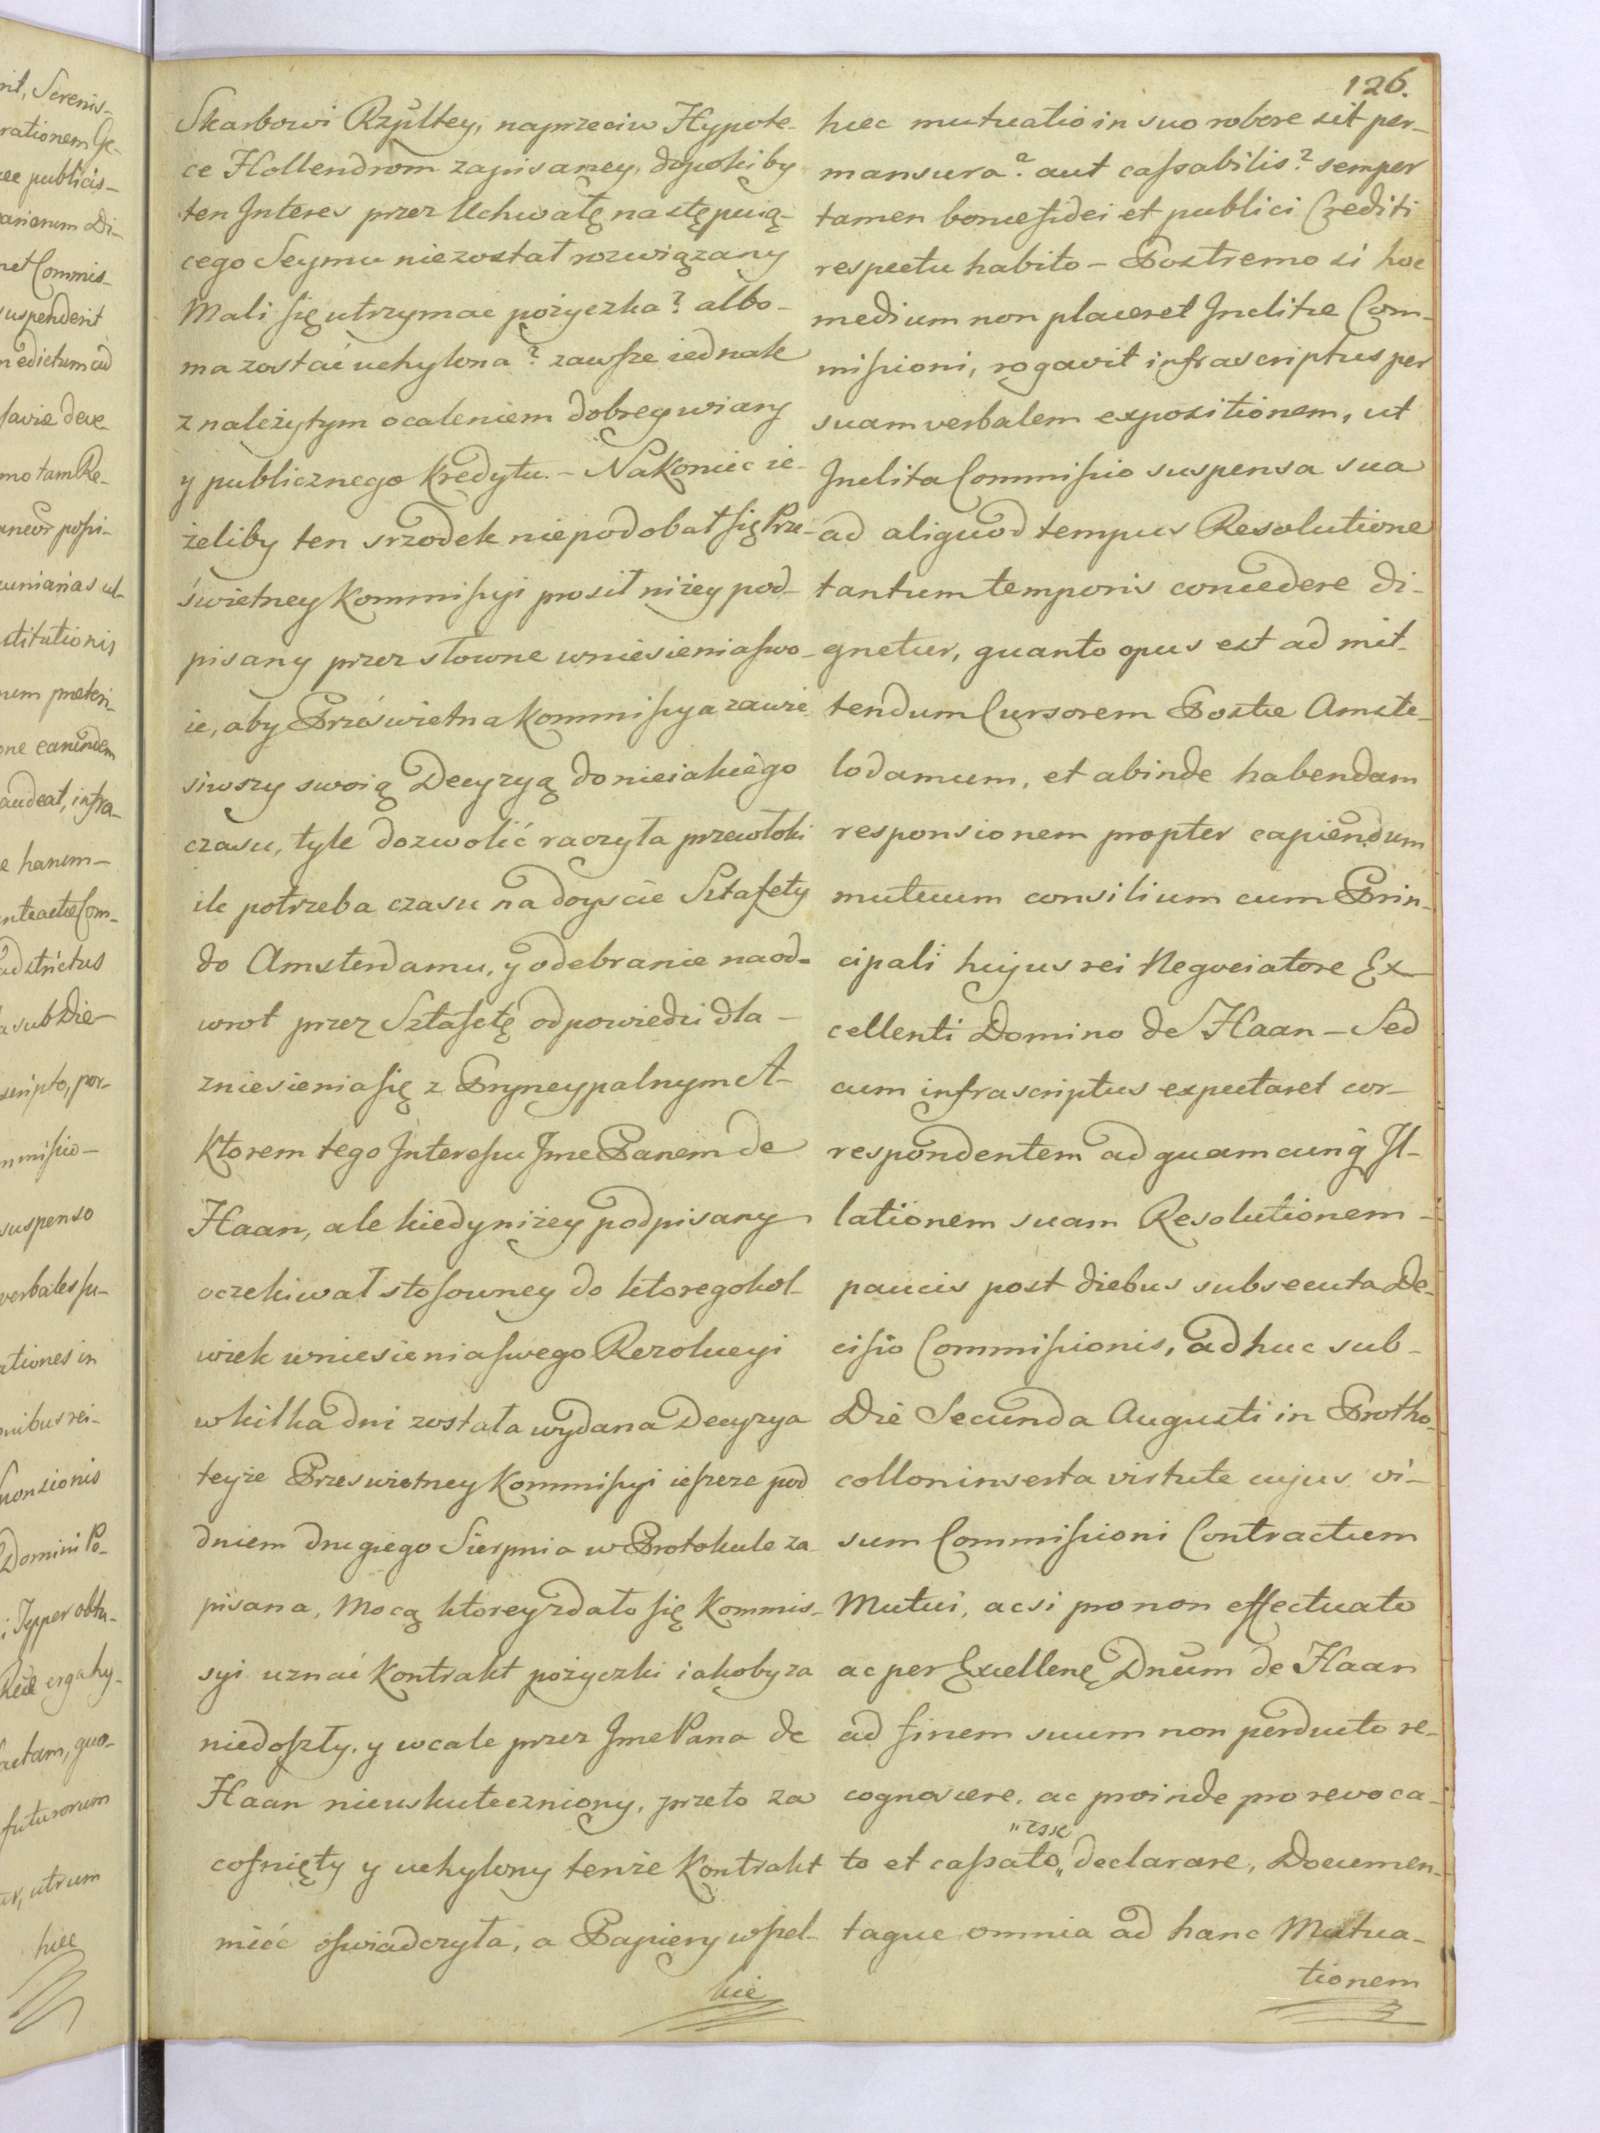 126.
Skarbowi Rzpltey, naprzeciw Hypote-
ce Hollendrom zapisaney, dopoki by
ten Interes przez Uchwałę następuią-
cego Seymu niezostał rozwiązany
Mali się utrzymac pożyczka? albo-
ma zostać uchylona? zawsze iednak
z należytym ocaleniem dobrey wiary
y publicznego kredytu. - Nakoniec ie-
żeliby ten srzodek niepodobał się Prze-
świetney Kommissyi prosił niżey pod-
pisany przez słowne wniesienia swo-
ie, aby Prześwietna Kommissya zawie
siwszy swoią Decyzyą do nieiakiego
czasu, tyle dozwolić raczyła przewłoki
ile potrzeba czasu na doyscie Sztafety
do Amsterdamu, y odebranie naod-
wrot przez Sztafetę odpowiedzi dla -
zniesienia się z Pryncypalnym A-
ktorem tego Interessu Jme Panem de
Haan, ale kiedy niżey podpisany
oczekiwał stosowney do ktoregokol-
wiek wniesienia swego Rezolucyi
w kilka dni została wydana Decyzya
teyże Przeswietney Kommissyi ieszcze pod
dniem drugiego Sierpnia w Protokule za
pisana, Mocą ktorey zdało się Kommis-
syi uznać Kontrakt pożyczki iakoby za
niedoszły, y wcale przez Jme Pana de
Haan nieuskuteczniony, przeto za
cofnięty y uchylony tenże Kontrakt
mieć oswiadczyła, a Papiery wszel-
kie
hæc mutuatio in suo robore sit per-
mansura? aut cassabilis? semper
tamen bonæ fidei et publici Crediti
respectu habito - Postremo si hoc
medium non placeret Inclitæ Com-
missioni, rogavit infrascriptus per
suam verbalem expositionem, ut
Inclita Commissio suspensa sua
ad aliquod tempus Resolutione
tantum temporis concedere di-
gnetur, quanto opus est ad mit-
tendum Cursorem Postæ Amste-
lodamum, et abinde habendam
responsionem propter capiendum
mutuum consilium cum Prin-
cipali hujus rei Negociatore Ex-
cellenti Domino de Haan - Sed
cum infrascriptus expectaret cor-
respondentem ad quamcunq Il-
lationem suam Resolutionem -
paucis post diebus subsecuta De-
cisio Commissionis, adhuc sub -
Die Secunda Augusti in Protho-
collon inserta virtute cujus vi-
sum Commissioni Contractum
Mutui, acsi pro non effectuato
ac per Excellenẽ Dnum de Haan
ad finem suum non perducto re-
cognoscere, ac proinde pro revoca-
" esse
to et cassato " declarare, Documen-
taque omnia ad hanc Mutua-
tionem